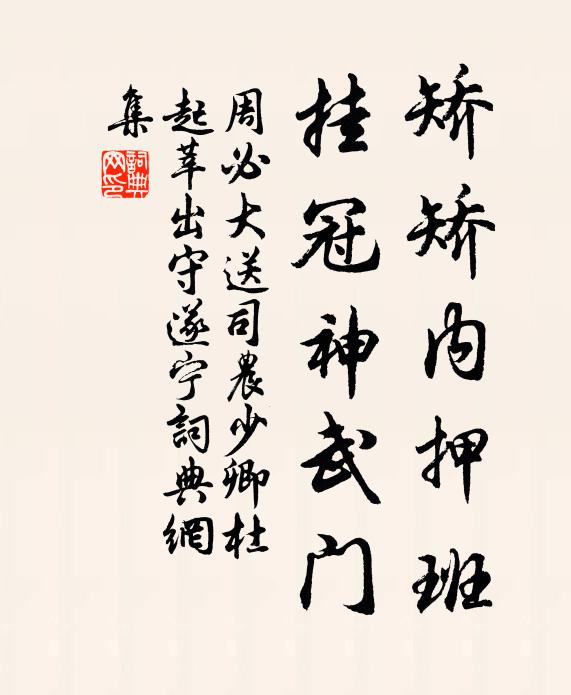 矫矫内押班
挂冠神武门
周必大送司農少卿杜
起莘出守遂宁詞典網
集
詞典
网印